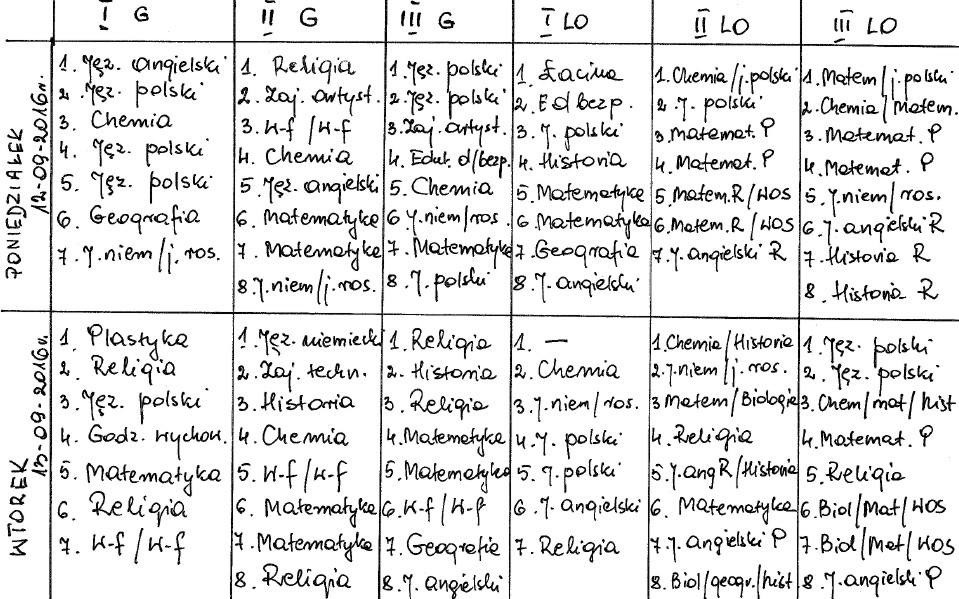 I G
II G
III G
I LO
II LO
III LO
PONIEDZIAŁEK
12-09-2016r.
1. Jęz. angielski
2. Jęz. polski
3. Chemia
4. Jęz. polski
5. Jęz. polski
6. Geografia
7. J. niem/j. ros.
1. Religia
2. Zaj. artyst.
3. W-f / W-f
4. Chemia
5 Jęz. angielski
6. Matematyka
7. Matematyka
8. J. niem/j. ros.
1. Jęz. polski
2. Jęz. polski
3. Zaj. artyst.
4. Eduk. d/bezp.
5. Chemia
6 J. niem/ros.
7. Matematyka
8. J. polski
1. Łacina
2. Ed bezp.
3. J. polski
4. Historia
5. Matematyka
6. Matematyka
7. Geografia
8. J. angielski
1. Chemia/j. polski
2. J. polski
3. Matemat. P
4. Matemat. P
5. Matem. R / WOS
6. Matem. R / WOS
7. J. angielski R
1. Matem/j. polski
2. Chemia/Matem.
3. Matemat. P
4. Matemat. P
5. J. niem/ros.
6. J. angielski R
7. Historia R
8. Historia R
WTOREK
13-09-2016r.
1. Plastyka
2. Religia
3. Jęz. polski
4. Godz. wychow.
5. Matematyka
6. Religia
7. W-f / W-f
1. Jęz. niemiecki
2. Zaj. techn.
3. Historia
4. Chemia
5. W-f / W-f
6. Matematyka
7. Matematyka
8. Religia
1. Religia
2. Historia
3. Religia
4. Matematyka
5. Matematyka
6. W-f / W-f
7. Geografia
8. J. angielski
1. —
2. Chemia
3. J. niem/ros.
4. J. polski
5. J. polski
6 J. angielski
7. Religia
1. Chemia/Historia
2. J. niem/j. ros.
3 Matem/Biologia
4. Religia
5. J. ang R/Historia
6. Matematyka
7. J. angielski P
8. Biol/geogr./hist
1. Jęz. polski
2. Jęz. polski
3. Chem/mat/hist
4. Matemat. P
5. Religia
6. Biol/Mat/WOS
7. Biol/Mat/WOS
8. J. angielski P